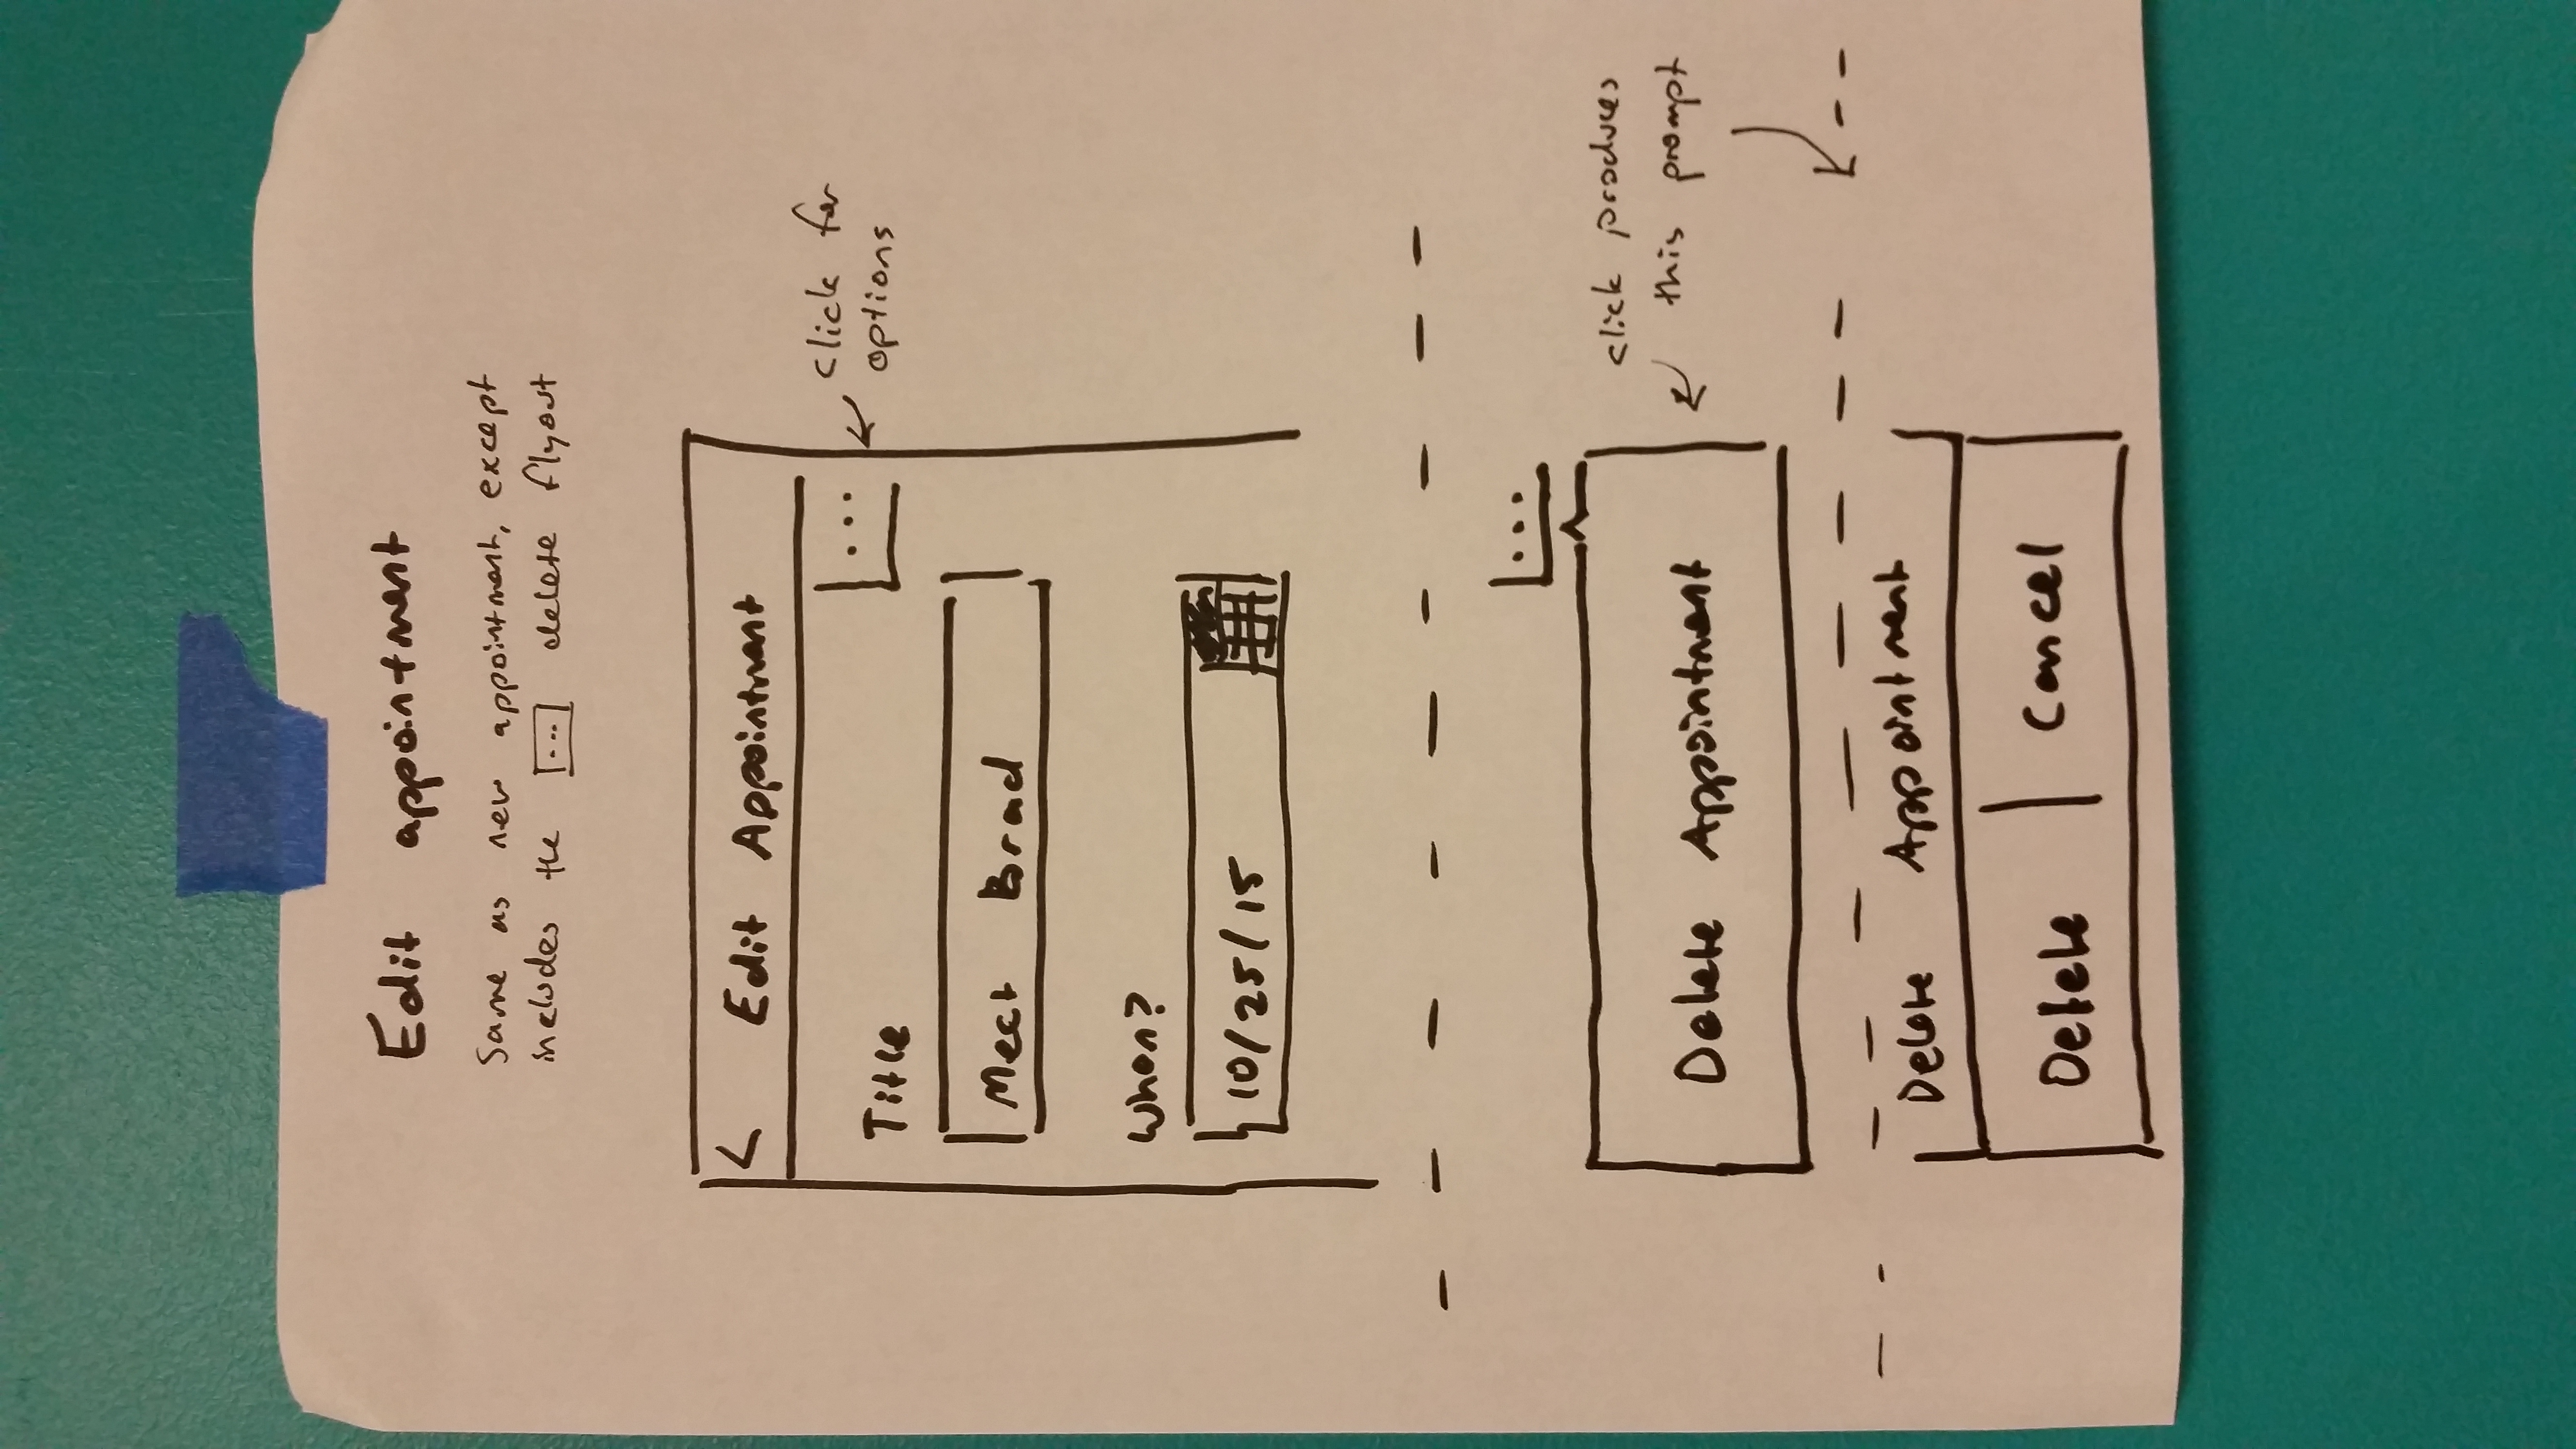 Edit appointment
Same as new appointment, except
includes the [...] delete flyout
< Edit Appointment
...
click for
options
Title
Meet Brad
When?
10/25/15
...
click produces
this prompt
Delete Appointment
Delete Appointment
Delete Cancel